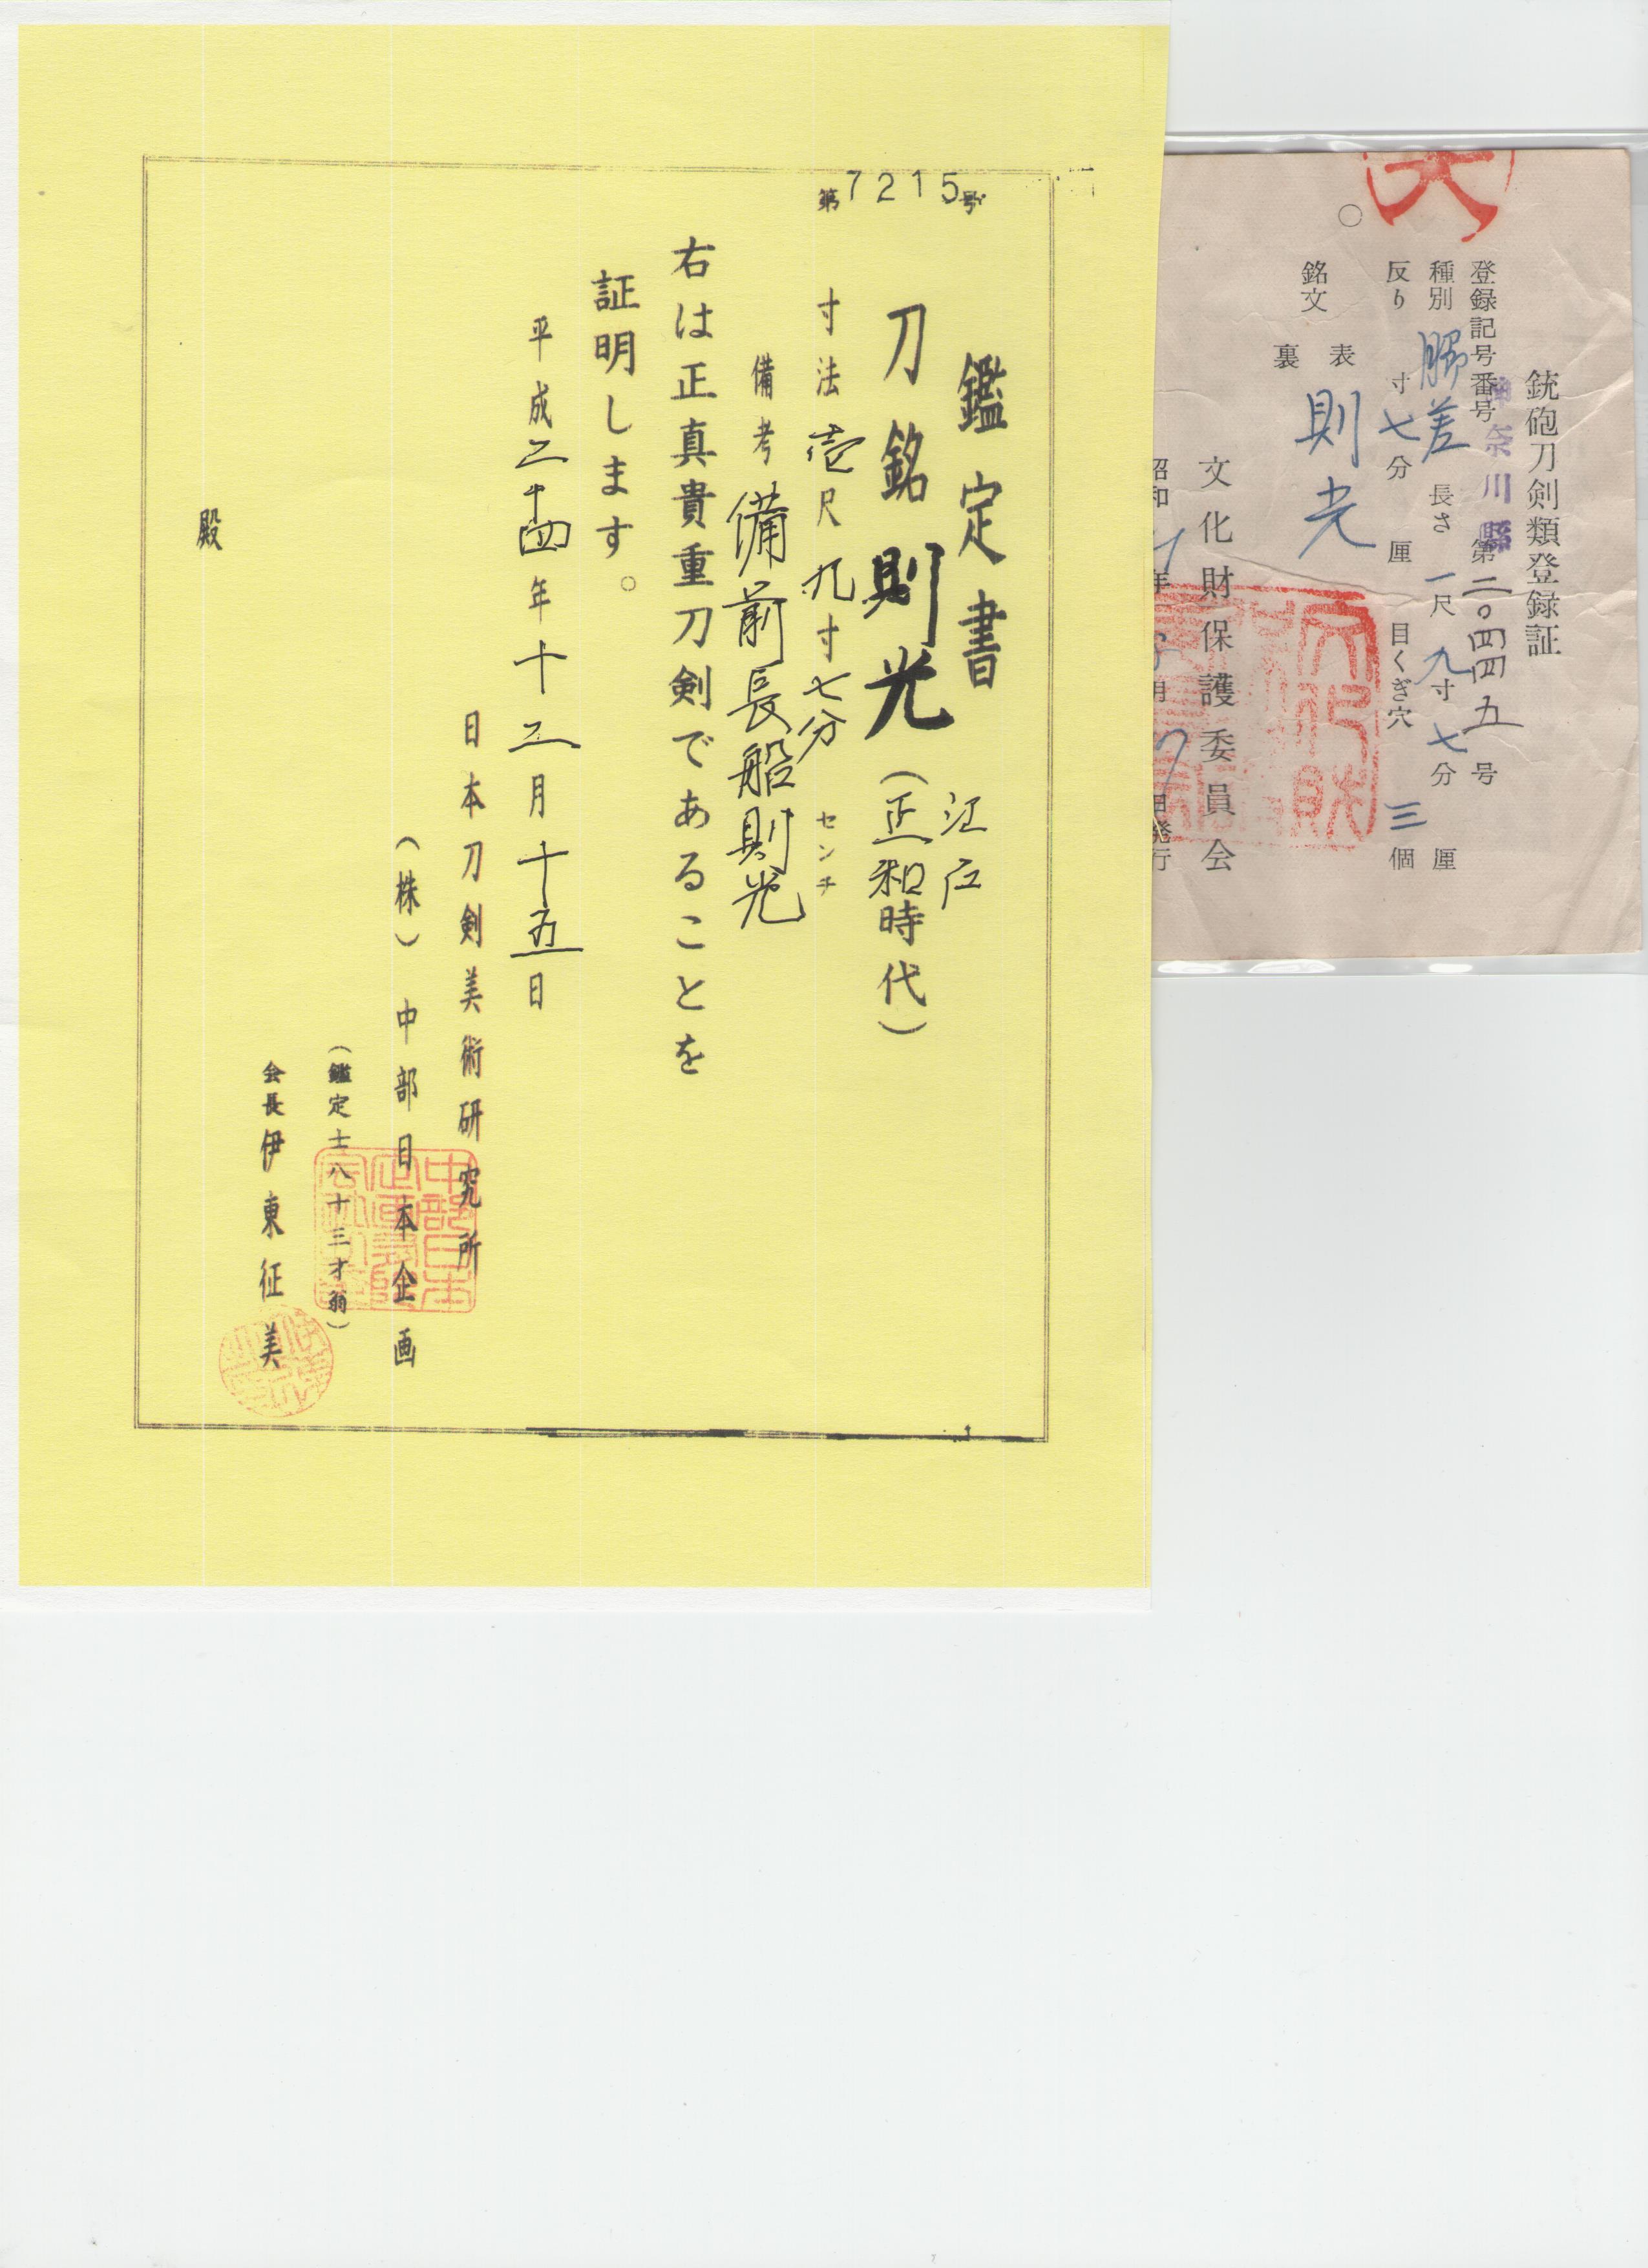 銃砲刀剣類登録証
登録記号番号 神奈川縣 第二〇四四五号
種別 脇差 長さ 一尺九寸七分 厘
反り 寸七分 厘 目くぎ穴 三個
銘文 表 則光
裏
文化財保護委員会
昭和 年 月 日発行
第7215号
鑑定書
刀銘 則光 (江戸 正和時代)
寸法 壱尺九寸七分 センチ
備考 備前長船則光
右は正真貴重刀剣であることを
証明します。
平成二十四年十二月十五日
日本刀剣美術研究所
(株) 中部日本企画
(鑑定士八十三才翁)
会長 伊東征美
殿